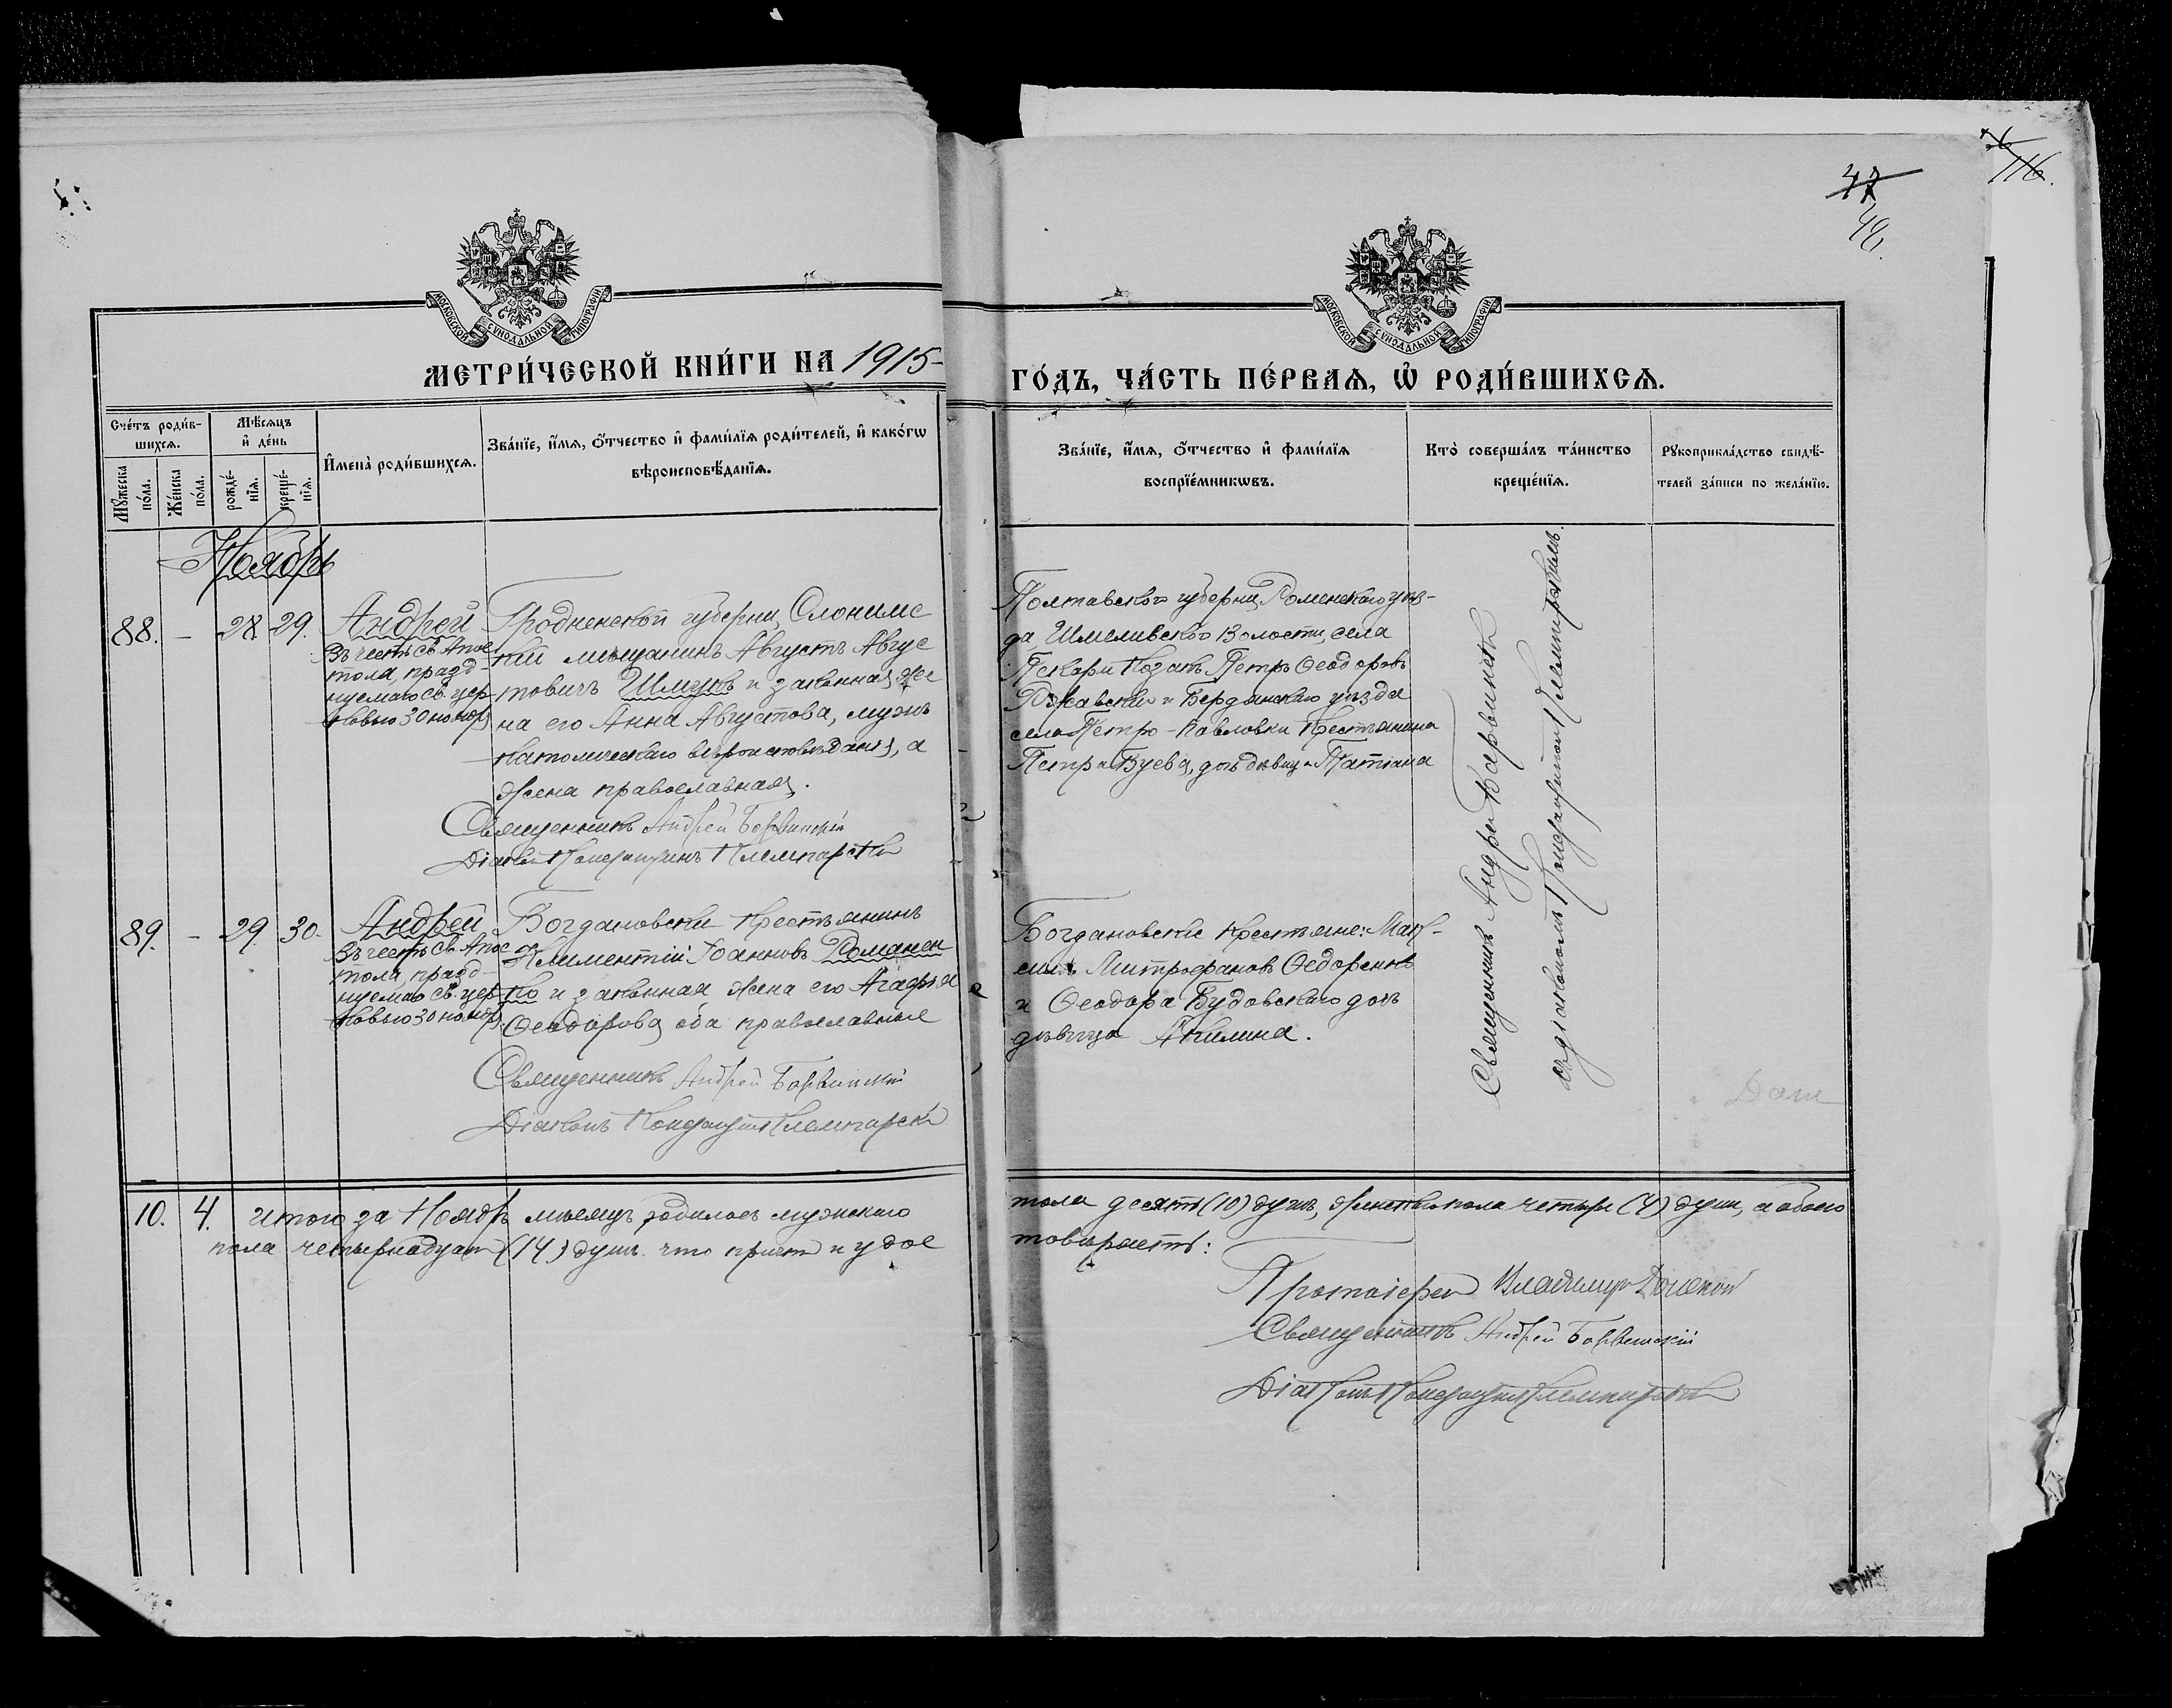 116.
47
49.
МОСКОВСКОЙ СѴНОДАЛЬНОЙ ТИПОГРАФІИ
МОСКОВСКОЙ СѴНОДАЛЬНОЙ ТИПОГРАФІИ
МЕТРИ́ЧЕСКОЙ КНИ́ГИ НА 1915-
ГО́ДЪ, ЧА́СТЬ ПЕ́РВАѦ, Ѡ҆ РОДИ́ВШИХСѦ.
Сче́тъ роди́в-
шихсѧ.
Мꙋ́жеска
по́ла.
Же́нска
по́ла.
Мѣ́сѧцъ
и҆ де́нь
рожде́-
нїѧ.
креще́-
нїѧ.
И҆мена̀ роди́вшихсѧ.
Зва́нїе, и҆́мѧ, ѻ҆́тчество и҆ фами́лїѧ роди́телей, и҆ како́гѡ
вѣроисповѣ́данїѧ.
Зва́нїе, и҆́мѧ, ѻ҆́тчество и҆ фами́лїѧ
воспрїе́мникѡвъ.
Кто̀ соверша́лъ та́инство
креще́нїѧ.
Рꙋкоприкла́дство свидѣ́-
телей за́писи по жела́нїю.
Ноябрь
88. - 28. 29.
Андрей
Въ честь Св. Апос
тола, празд
нуемаго Св. Цер-
ковью 30 ноября
Гродненской губерни, Слонимс
кій мѣщанинъ Августъ Авгус
товичъ Шмукъ и законная же
на его Анна Августова, мужъ
католическаго вѣроисповѣданія, а
жена православная.
Священникъ Андрей Борвинскій
Діаконъ Константинъ
Полтавской губерни, Роменскаго уѣз-
да, Шмеливской Волости, села
Пекари Козакъ Петръ Ѳеодоровъ
и Бердянскаго уѣзда
села Петро-Павловки Крестьянина
Петра Буева, дочь дѣвица Татіана
Священникъ Андрей Борвинскій
съ діакономъ Константиномъ
89. - 29. 30.
Андрей
Въ честь Св. Апос
тола, празд-
нуемаго Св. Цер
ковью 30 ноября
Богдановскій Крестьянинъ
Климентій Іоанновъ Романен
ко и законная жена его Агафья
Ѳеодорова, оба православные
Священникъ Андрей Борвинскій
Діаконъ Константинъ
Богдановскіе Крестьяне: Мак-
симъ Митрофановъ Ѳедоренко
и Ѳеодора Будовскаго дочь
дѣвица Акилина.
10. 4. Итого за Ноябрь мѣсяцъ родилось мужскаго
пола десять (10) душъ, женскаго пола четыре (4) души, а обоего
пола четырнадцать (14) душъ. что причтъ и удос
товѣряетъ:
Протоіерей Владимиръ Донской
Священникъ Андрей Борвинскій
Діаконъ Константинъ